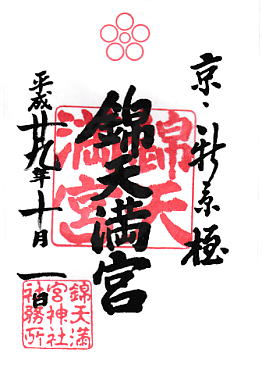 京・新京極
錦天満宮
平成廿九年十月一日
錦天
満宮
錦天満
宮神社
社務所